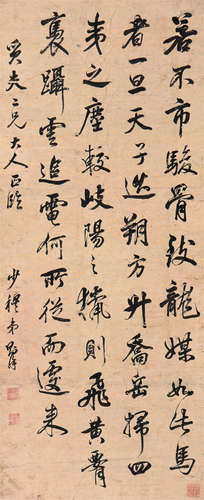 若不市駿骨致龍媒如此馬
者一旦天子巡朔方升喬岳掃四
夷之塵較岐陽之獵則飛黃腰
褭躡雲追電何所從而遽來
吳夫二兄大人正臨
少穆弟